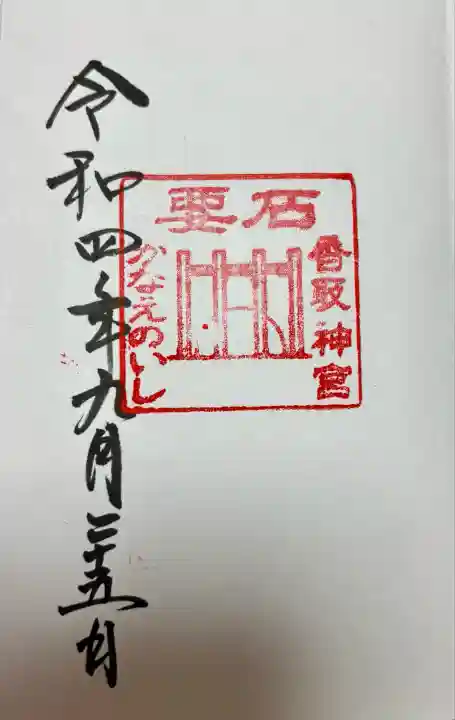 香取神宮
要石
かなえのいし
令和四年九月二十五日